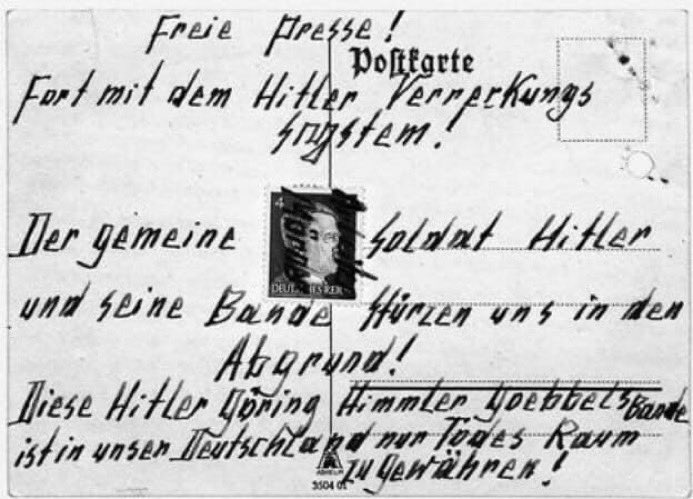 Freie Presse!
Postkarte
Fort mit dem Hitler Verreckungs
system!
4
Der gemeine Soldat Hitler
und seine Bande stürzen uns in den
Abgrund!
Diese Hitler Göring Himmler Goebbels Bande
ist in unser Deutschland nur Todes Raum
zu gewähren!